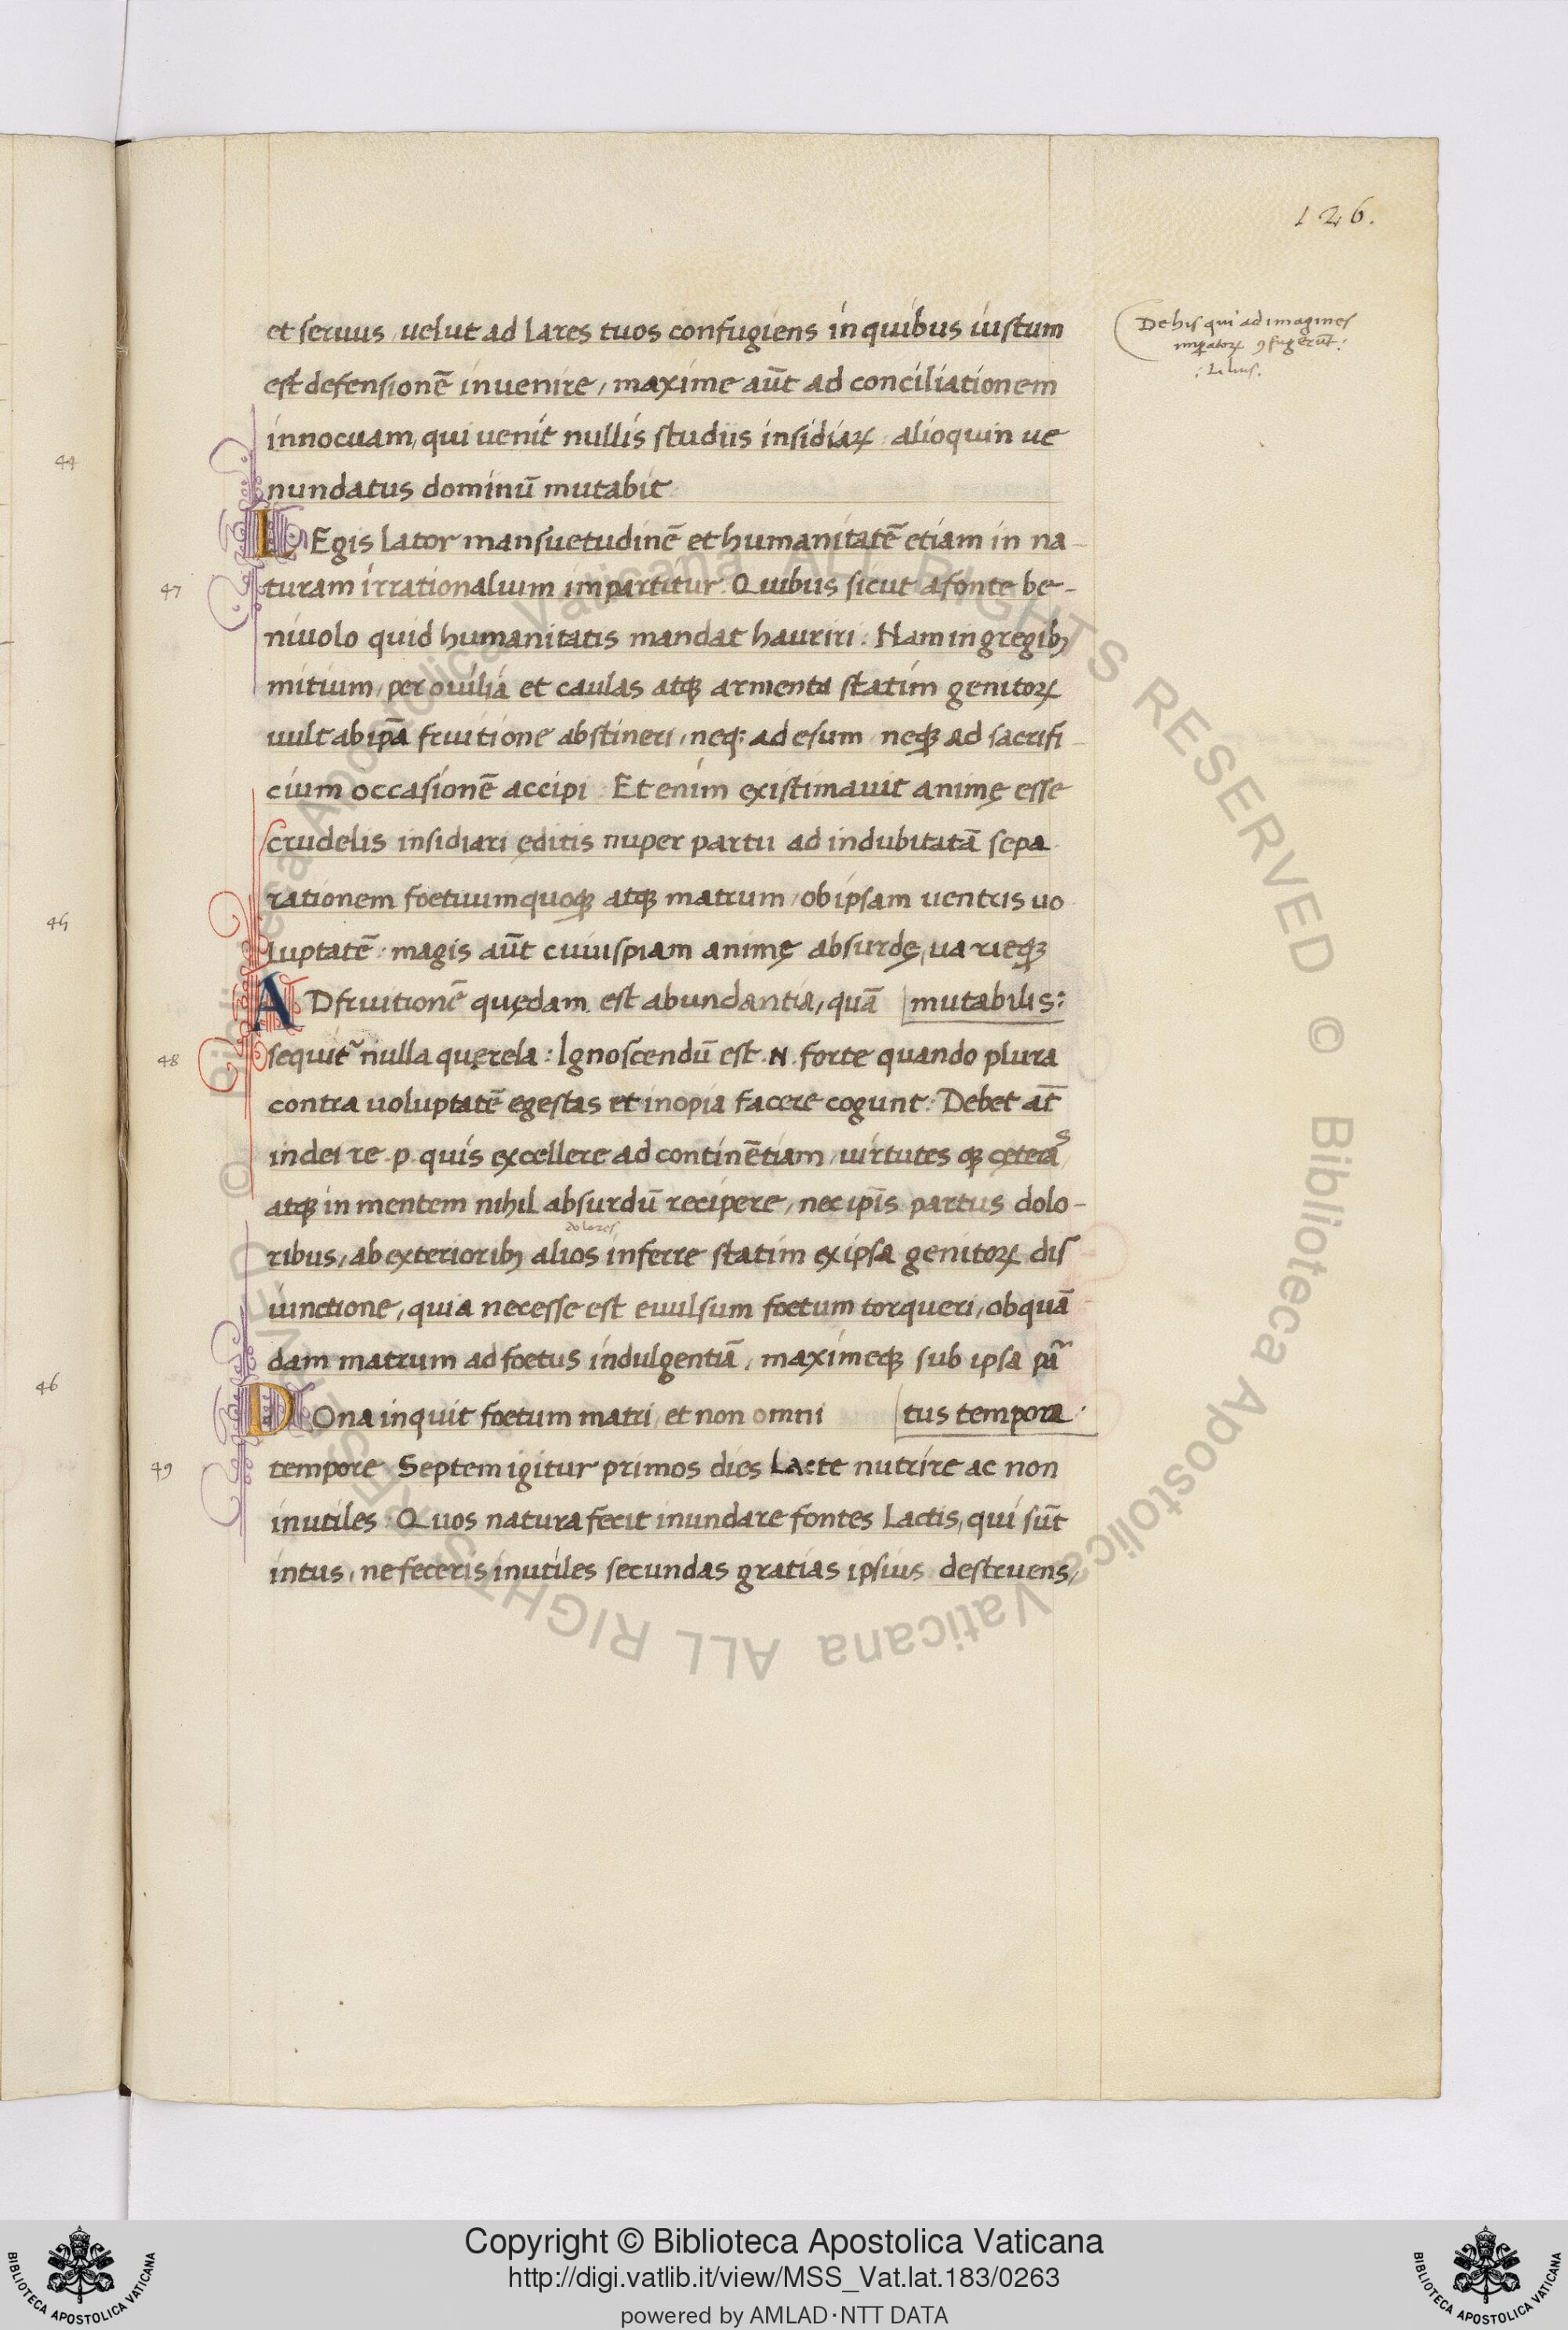 126.
et seruus uelut ad lares tuos confugiens in quibus iustum
est defensionē inuenire, maxime aūt ad conciliationem
innocuam, qui uenit nullis studiis insidiaꝝ alioquin ue
nundatus dominū mutabit
De his qui ad imagines
44
LEgis lator mansuetudinē et humanitatē etiam in na-
47
turam irrationalium impartitur. Quibus sicut a fonte be-
niuolo quid humanitatis mandat hauriri: Nam in gregibꝫ
mitium, per ouilia et caulas atqꝫ armenta statim genitoꝝ
uult ab ipā fruitione abstineri, neqꝫ ad esum neqꝫ ad sacrifi-
cium occasionē accipi. Etenim existimauit animę esse
crudelis insidiari ęditis nuper partu ad indubitatā sepa
rationem foetuum quoqꝫ atqꝫ matrum, ob ipsam uentris uo
luptatē: magis aūt cuiuspiam animę absurdę, uarieqꝫ
mutabilis:
ADfruitionē quędam est abundantia, quā
48
sequit᷑ nulla querela: Ignoscendū est .N. forte quando plura
contra uoluptatē egestas et inopia facere cogunt: Debet at̄
in dei re .p. quis excellere ad continētiam, uirtutes qꝫ ceteras
atqꝫ in mentem nihil absurdū recipere, nec ip̄is partus dolo-
dolores
ribus, ab exterioribꝫ alios inferre statim ex ipsa genitoꝝ dis
iunctione, quia necesse est euulsum foetum torqueri, ob quā-
dam matrum ad foetus indulgentiā, maximeqꝫ sub ipsa pa᷑
tus tempora.
46
DOna inquit foetum matri, et non omni
49
tempore. Septem igitur primos dies Lacte nutrire ac non
inutiles. Quos natura fecit inundare fontes Lactis, qui sūt
intus, ne feceris inutiles secundas gratias ipsius destruens,
Copyright © Biblioteca Apostolica Vaticana
http://digi.vatlib.it/view/MSS_Vat.lat.183/0263
powered by AMLAD·NTT DATA
BIBLIOTECA APOSTOLICA VATICANA
BIBLIOTECA APOSTOLICA VATICANA
© Biblioteca Apostolica Vaticana ALL RIGHTS RESERVED © Biblioteca Apostolica Vaticana ALL RIGHTS RESERVED